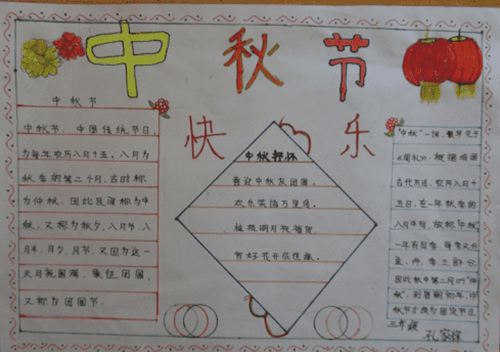 中秋节
快乐
中秋节
中秋节，中国传统节日，
为每年农历八月十五，八月为
秋季的第二个月，古时称
为仲秋，因此民间称为中
秋，又称为秋夕，八月节，八
月半，月夕，月节，又因为这一
天月亮圆满，象征团圆，
又称为团圆节。
中秋
喜迎中秋友团圆，
欢乐笑语万里传，
桂枝明月我
“中秋”一词，最早见于
《周礼》，根据我国
古代历法，农历八月十
五日，在一年秋季的
八月中旬，故称中秋
一年有四季，每季又分
孟、仲、季三部分，
因此秋中第二月叫“仲
秋”，到唐朝初年，中
秋节才成为固定节日。
三年级
孔家